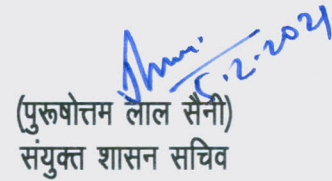 5.2.2021
(पुरूषोत्तम लाल सैनी)
संयुक्त शासन सचिव